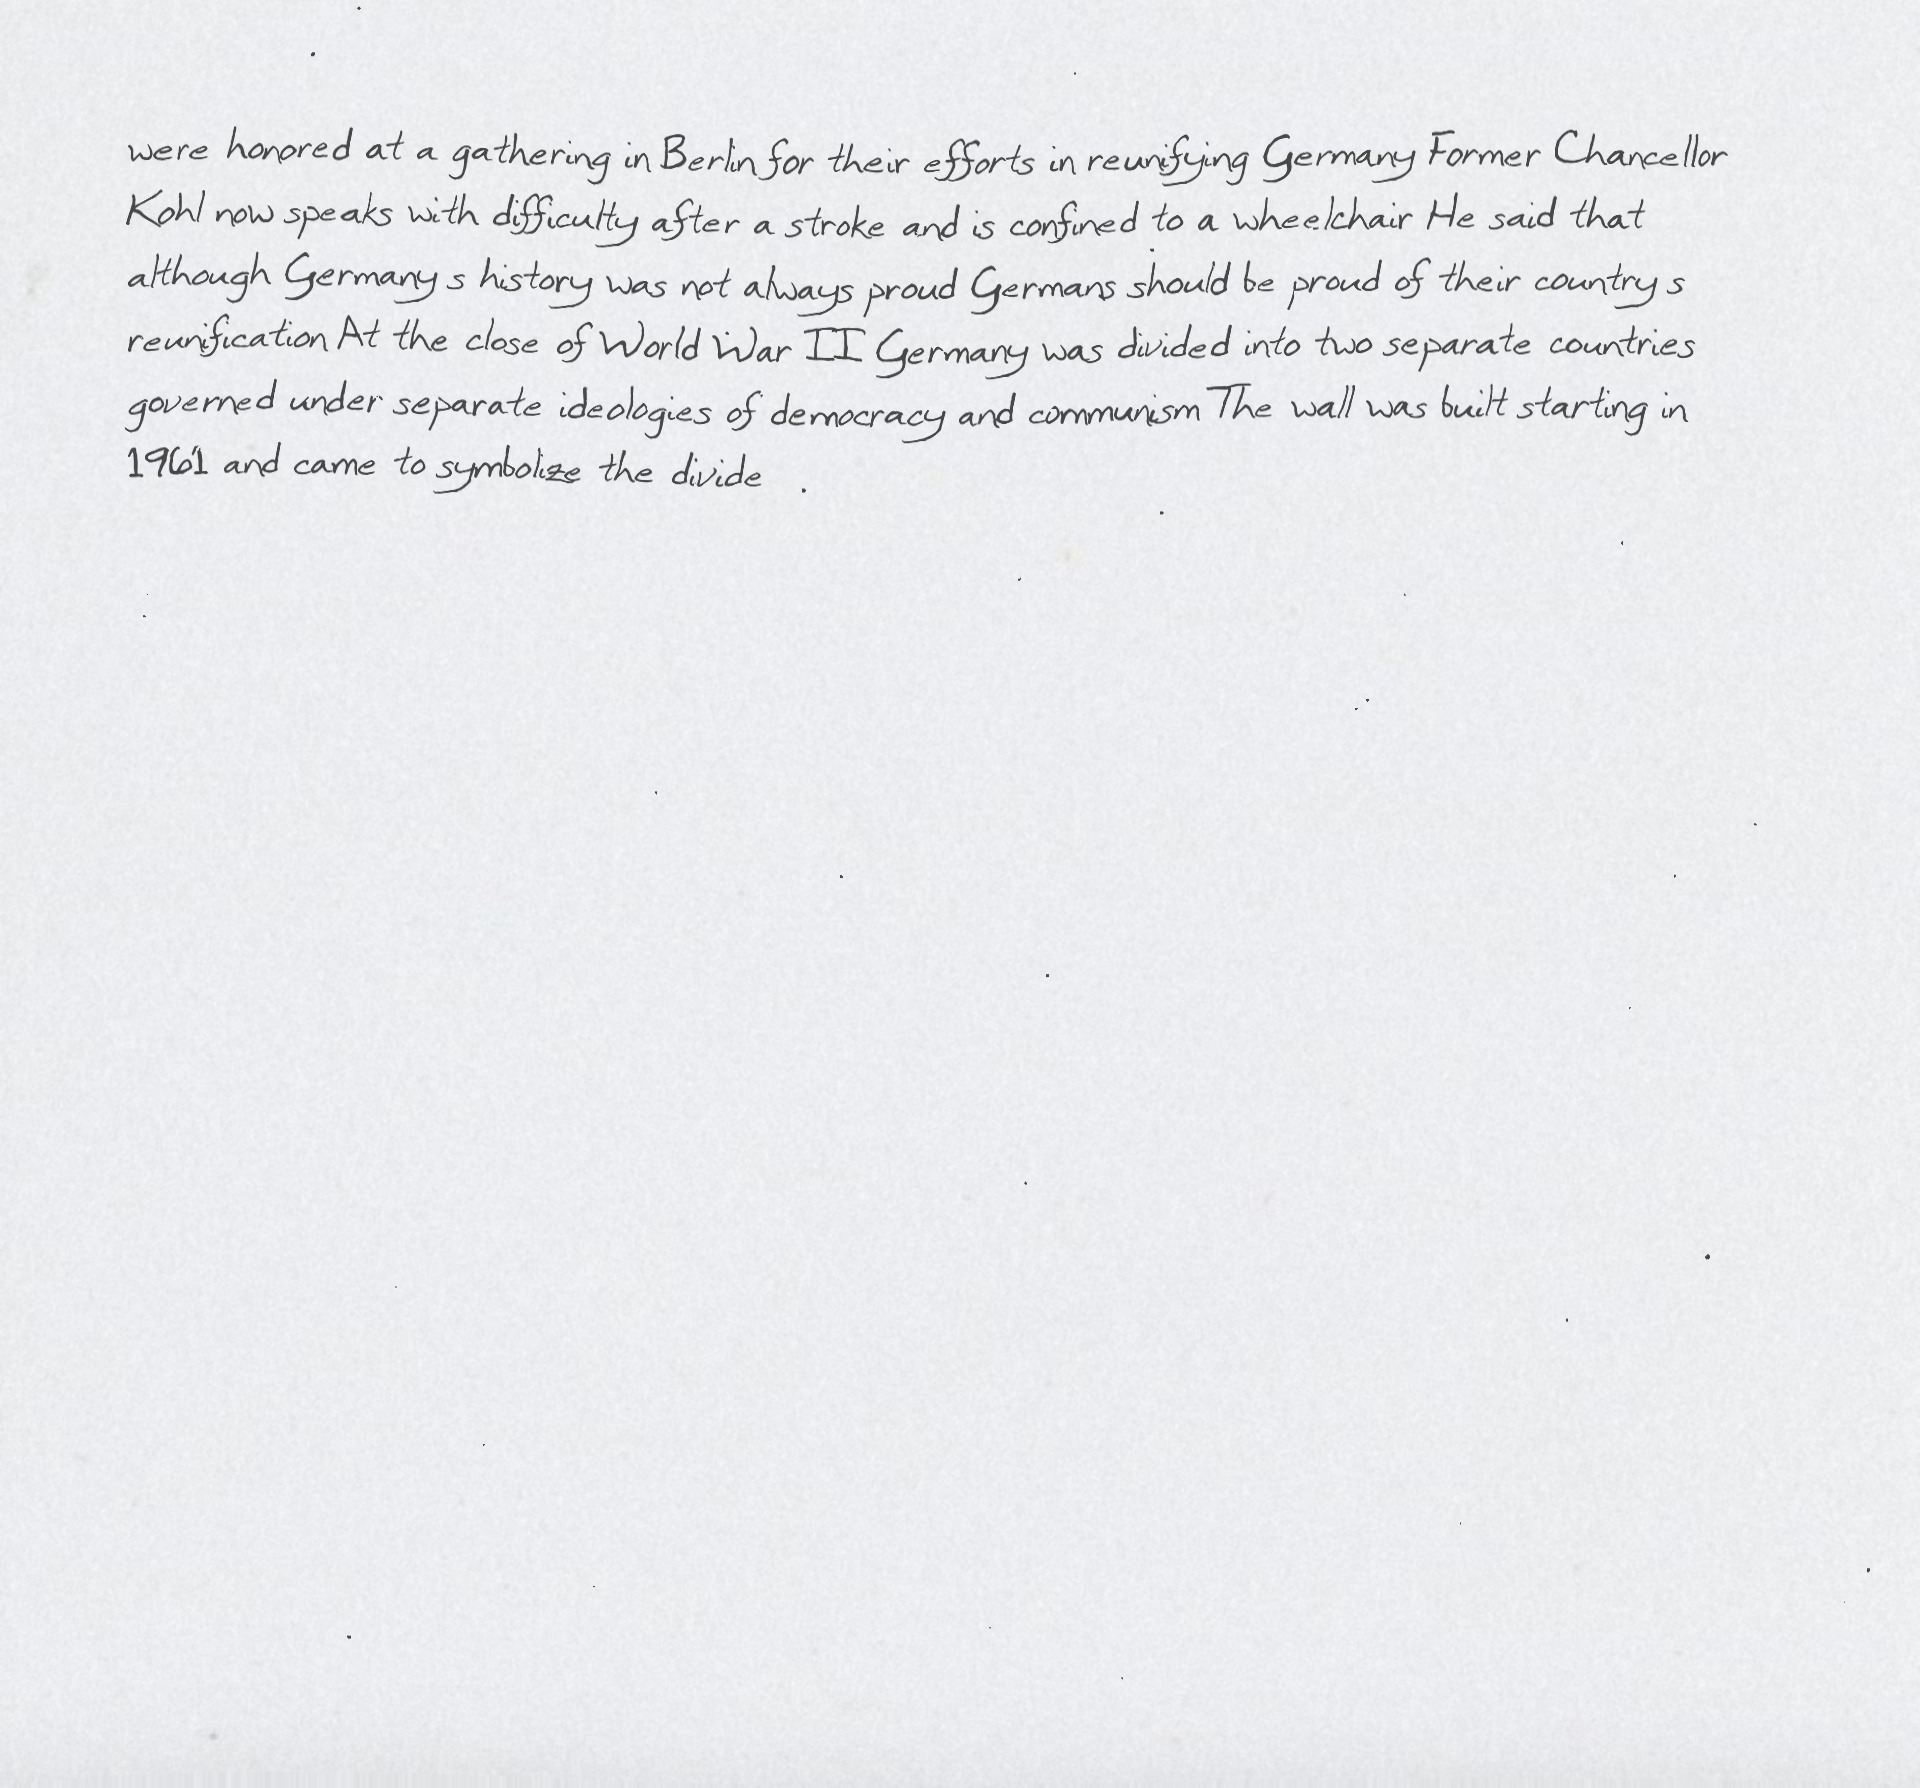 were honored at a gathering in Berlin for their efforts in reunifying Germany Former Chancellor
Kohl now speaks with difficulty after a stroke and is confined to a wheelchair He said that
although Germany s history was not always proud Germans should be proud of their country s
reunification At the close of World War II Germany was divided into two separate countries
governed under separate ideologies of democracy and communism The wall was built starting in
1961 and came to symbolize the divide